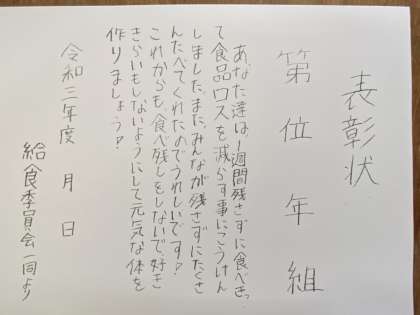 表彰状
第 位 年 組
あなた達は、1週間残さずに食べきっ
て食品ロスを減らす事にこうけん
しました。また、みんなが残さずにたくさ
んたべてくれたのでうれしいです!
これからも、食べ残しをしないで、好き
きらいもしないようにして元気な体を
作りましょう!
令和三年度 月 日
給食委員会一同より